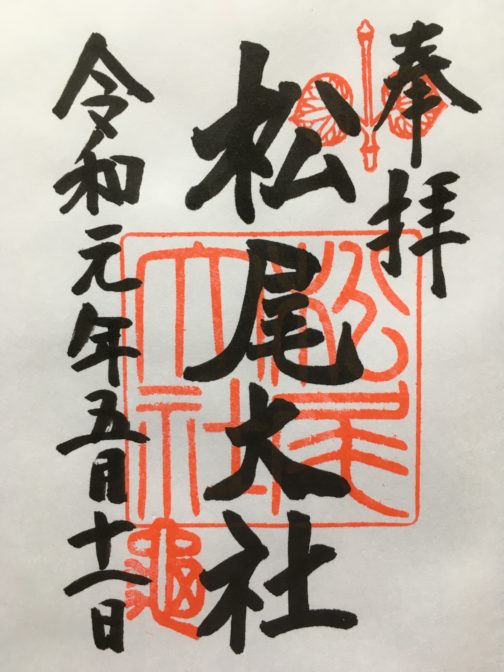 奉拝
松尾大社
令和元年五月十八日
松尾
大社